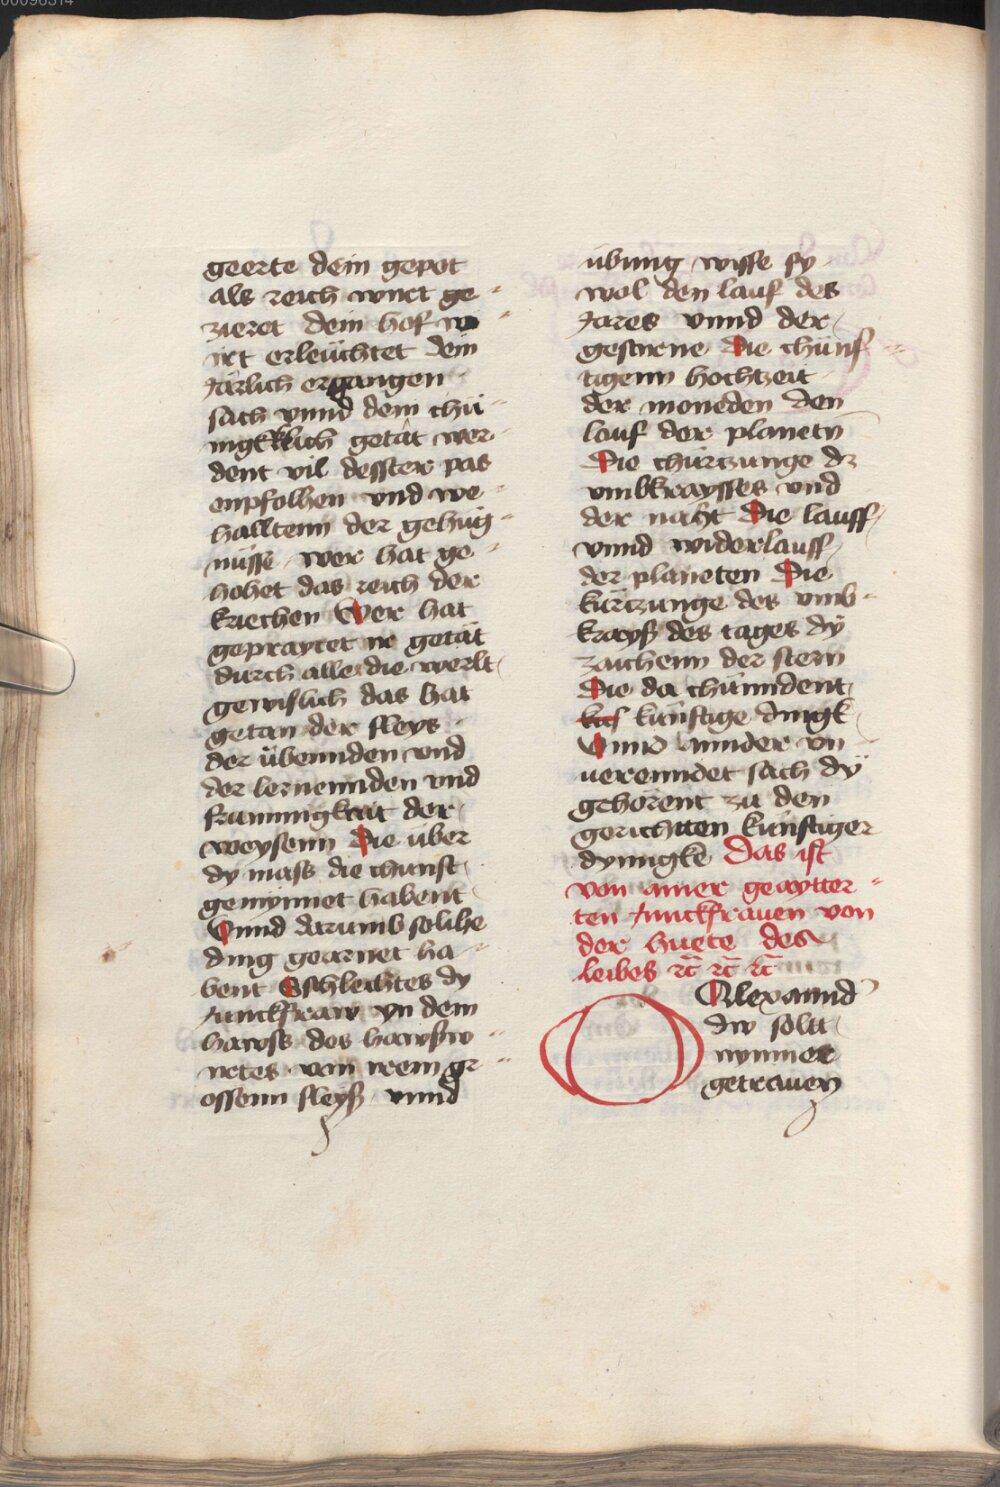 geerte dein gepot
als reich wirt ge-
zieret dein hof wi
irt erleüchtet dein
järlich ergangen
sach vnnd dem chü-
nigklich getät wer-
dent vil desster pas
enpfolhen vnd we-
halltenn der gehüg-
nüsse wer hat ge-
hohet das reich der
kriechen Wer hat
gepraytet ir getät
durch alle die werlt
gewislich das hat
getan der fleys
der übennden vnd
der lernennden vnd
frümmigkait der
weysenn Die über
dy mass die chunst
gemynnet habent
Vnnd darumb solihe
ding gearnet ha-
bent Eschlechtes dy
junckfraw yn dem
hawss des hawßw-
irtes von irem gr-
ossenn fleyß vnnd
übung wisse sy
wol den lauf des
jares vnnd der
gestirne Die chünf-
tigenn hochtzeit
der moneden den
lauf der planetn
Die chürtzunge dz
vmbkraysses vnd
der nacht Die lauff
vnnd widerlauff
der planeten Die
kürtzunge des vmb-
krayß des tages dÿ
zaichenn der stern
Die da chünndent
künftige dingk
Vnnd annder vn
uerenndet sach dÿ
gehörent zu den
gerichtten künftiger
dynngke Das ist
von ainer geaytter-
ten junckfrauen von
der huete des
leibes ꝛc̄ ꝛc̄ ꝛc̄
O Alexannd
dw sollt
nymmer
getrauen